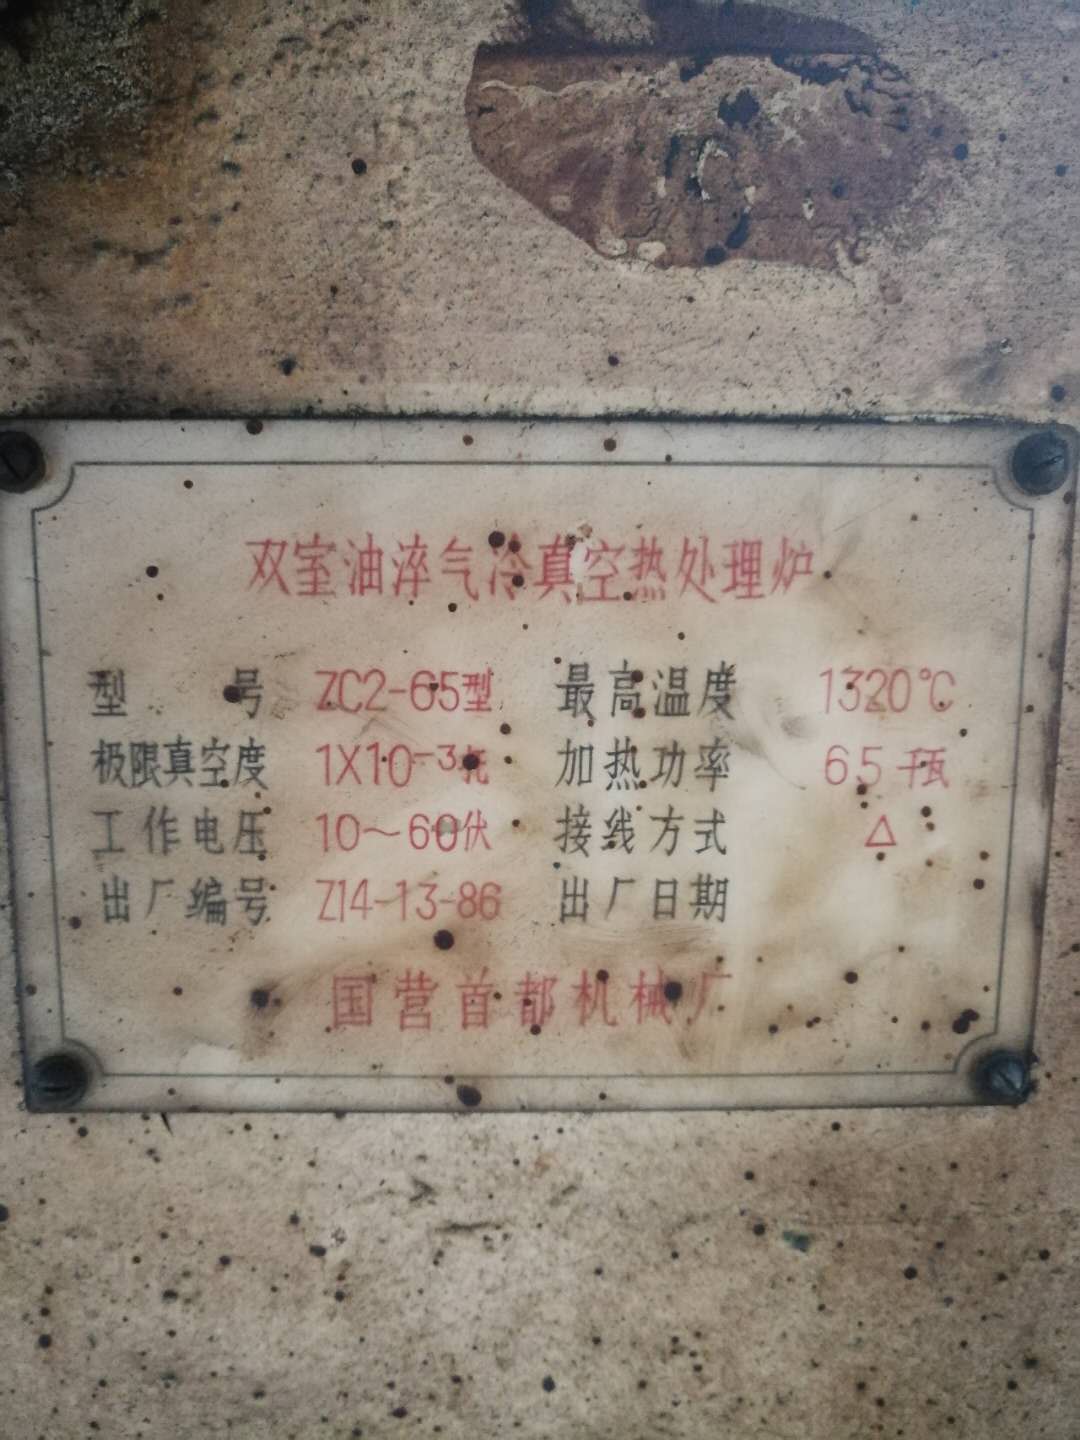 双室油淬气冷真空热处理炉
型号 ZC2-65型 最高温度 1320℃
极限真空度 1X10-3托 加热功率 65千瓦
工作电压 10～60伏 接线方式 △
出厂编号 Z14-13-86 出厂日期
国营首都机械厂